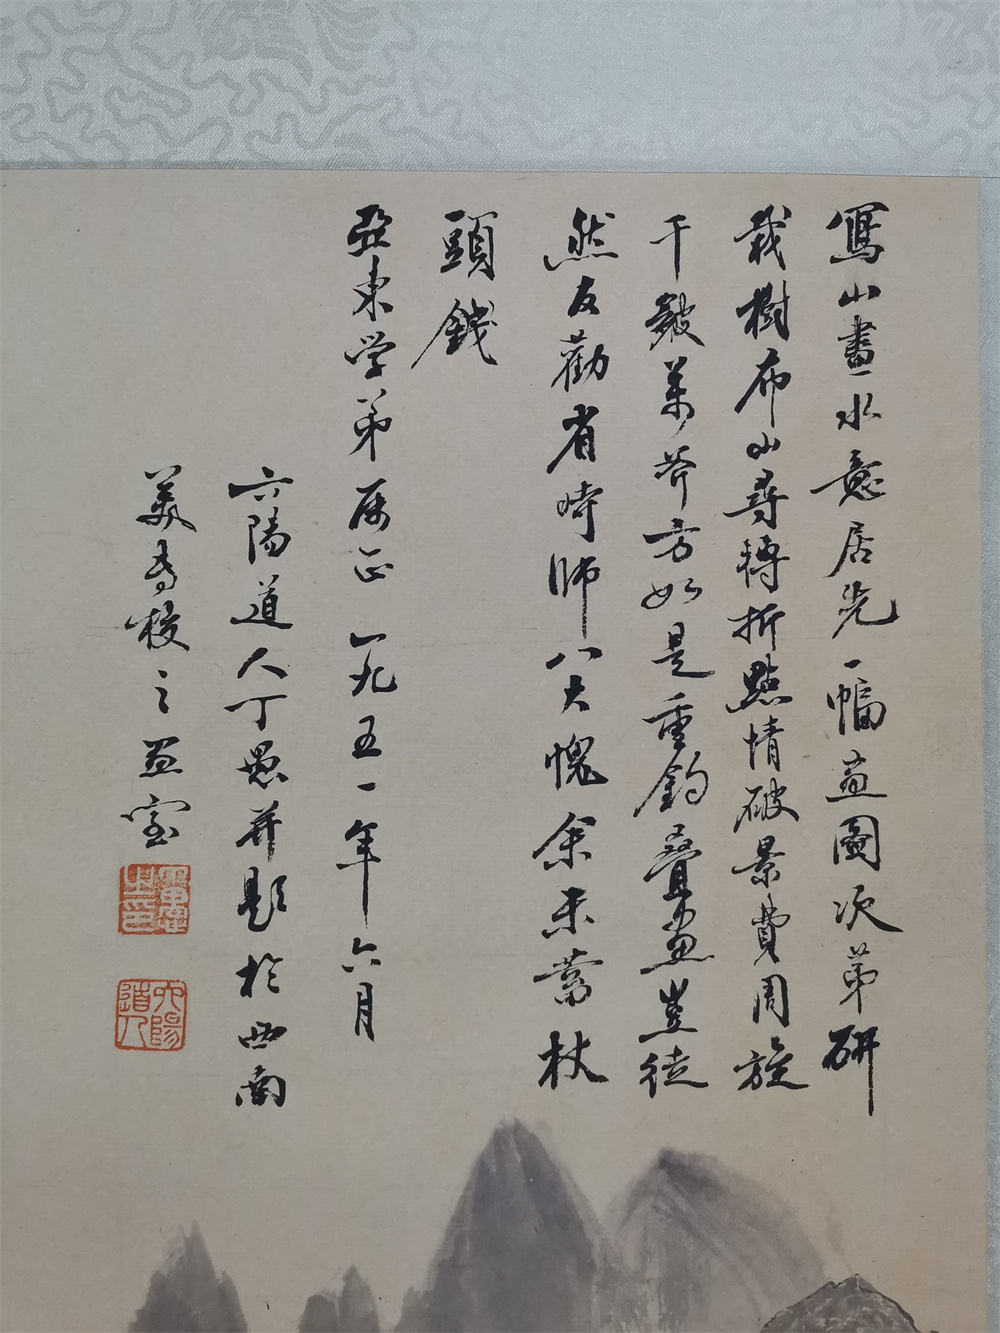 寫山畫水意居先一幅畫圖次第研
栽樹布山尋轉折點情破景費周旋
千皴萬斧方如是重鈎疊畫豈徒
然友勸省時師八大愧余未蓄杖
頭錢
亞東学弟属正 一九五一年六月
六陽道人丁愚并題於西南
美專校之畫室
六陽道人